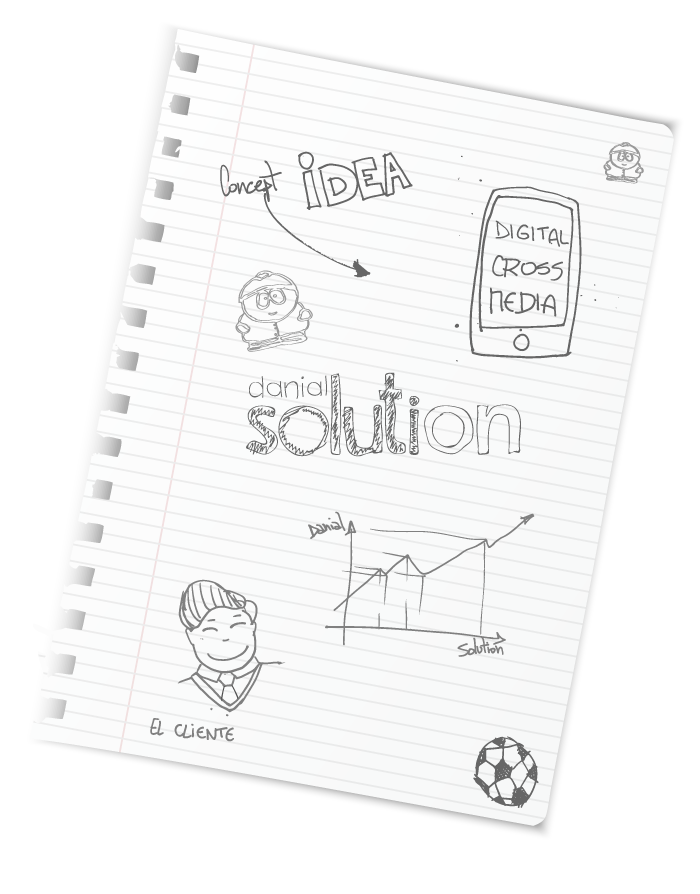 Concept IDEA
DIGITAL
CROSS
MEDIA
danial
solution
Danial
Solution
EL CLIENTE